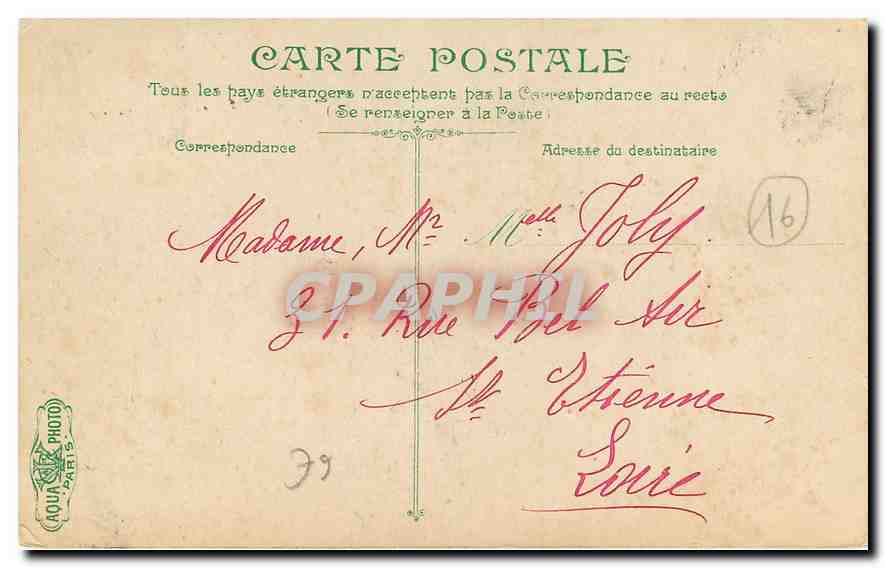 CARTE POSTALE
Tous les pays étrangers n'acceptent pas la Correspondance au recto
(Se renseigner à la Poste)
Correspondance
Adresse du destinataire
16
Madame, Mr. Melle Joly.
31. Rue Bel Air
St Etienne
Loire
79
CPAPHIL
AQUA PHOTO
PARIS